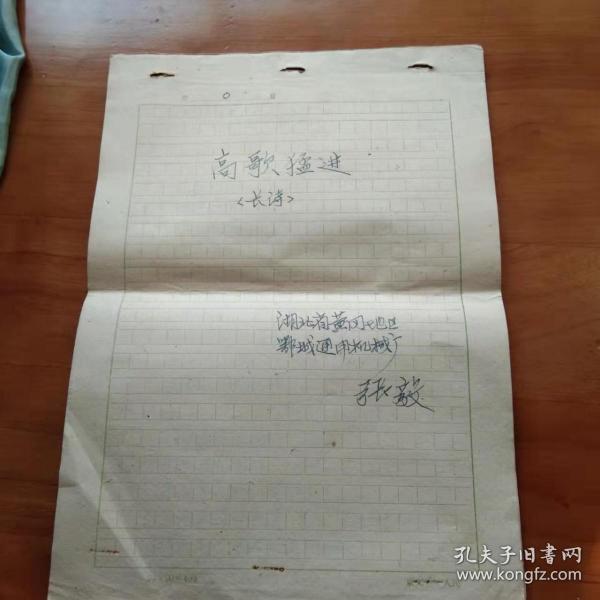 高歌猛进
<长诗>
湖北省黄冈地区
鄂城通用机械厂
张毅
孔夫子旧书网
www.kongfz.com